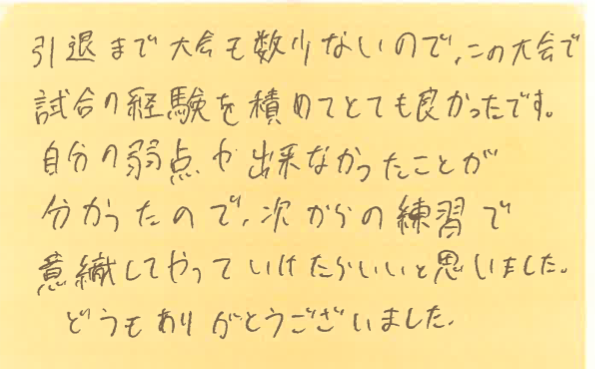 引退まで大会も数少ないので、この大会で
試合の経験を積めてとても良かったです。
自分の弱点や出来なかったことが
分かったので、次からの練習で
意織してやっていけたらいいと思いました。
どうもありがとうございました。